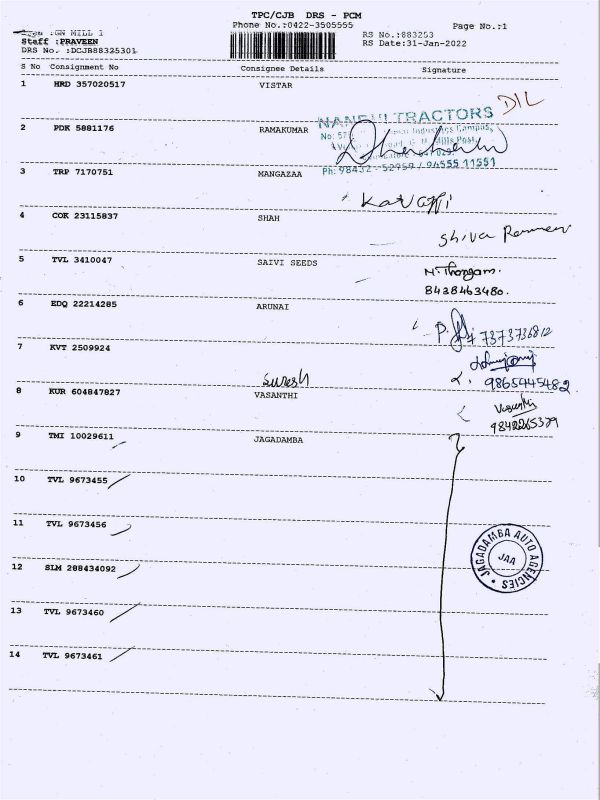 TPC/CJB DRS - PCM
Phone No.:0422-3505555
Page No.:1
:GN MILL 1
Staff :PRAVEEN
DRS No. :DCJB88325301
RS No.:883253
RS Date:31-Jan-2022
S No Consignment No Consignee Details Signature
1 HRD 357020517 VISTAR
DIL
TRACTORS
2 PDK 5881176 RAMAKUMAR
Industries Campus,
Mills Post,
Ph: 98432 - 52959 / 94555 11551
3 TRP 7170751 MANGAZAA
4 COK 23115837 SHAH
Shiva
5 TVL 3410047 SAIVI SEEDS
N. Thangam.
8438463480.
6 EDQ 22214285 ARUNAI
P. 7373736812
7 KVT 2509924
9865445482
Suresh
8 KUR 604847827 VASANTHI
9842265379
9 TMI 10029611 JAGADAMBA
10 TVL 9673455
11 TVL 9673456
JAGADAMBA AUTO AGENCIES
JAA
12 SLM 288434092
13 TVL 9673460
14 TVL 9673461